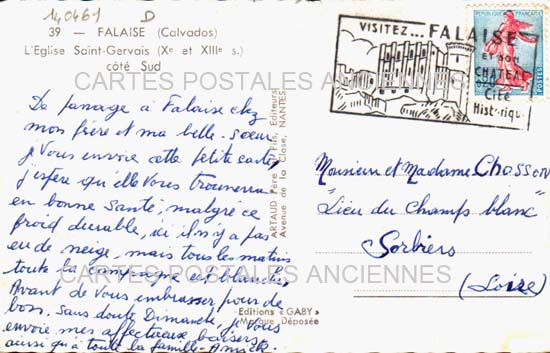 140461 D
39 — FALAISE (Calvados)
L'Eglise Saint-Gervais (Xe et XIIIe s.)
côté Sud
De passage à Falaise chez
mon frère et ma belle-soeur
je Vous envoie cette petite carte,
j'espère qu'elle Vous trouvera
en bonne Santé, malgré ce
froid durable, ici il n'y a pas
eu de neige, mais tous les matins
toute la campagne est blanche,
Avant de Vous embrasser pour de
bon, Sans doute Dimanche, je Vous
envoie mes affectueux baisers
ainsi qu'à toute la famille
ARTAUD Père et Fils, Editeurs
Avenue de la Close, NANTES
Editions "GABY"
Marque Déposée
VISITEZ... FALAISE
ET SON
CHATEAU
Cité
Historique
REPUBLIQUE FRANÇAISE
POSTES
Monsieur et Madame Chosson
"Lieu du Champs blanc"
Sorbiers
(Loire)
CARTES POSTALES ANCIENNES
CARTES POSTALES ANCIENNES